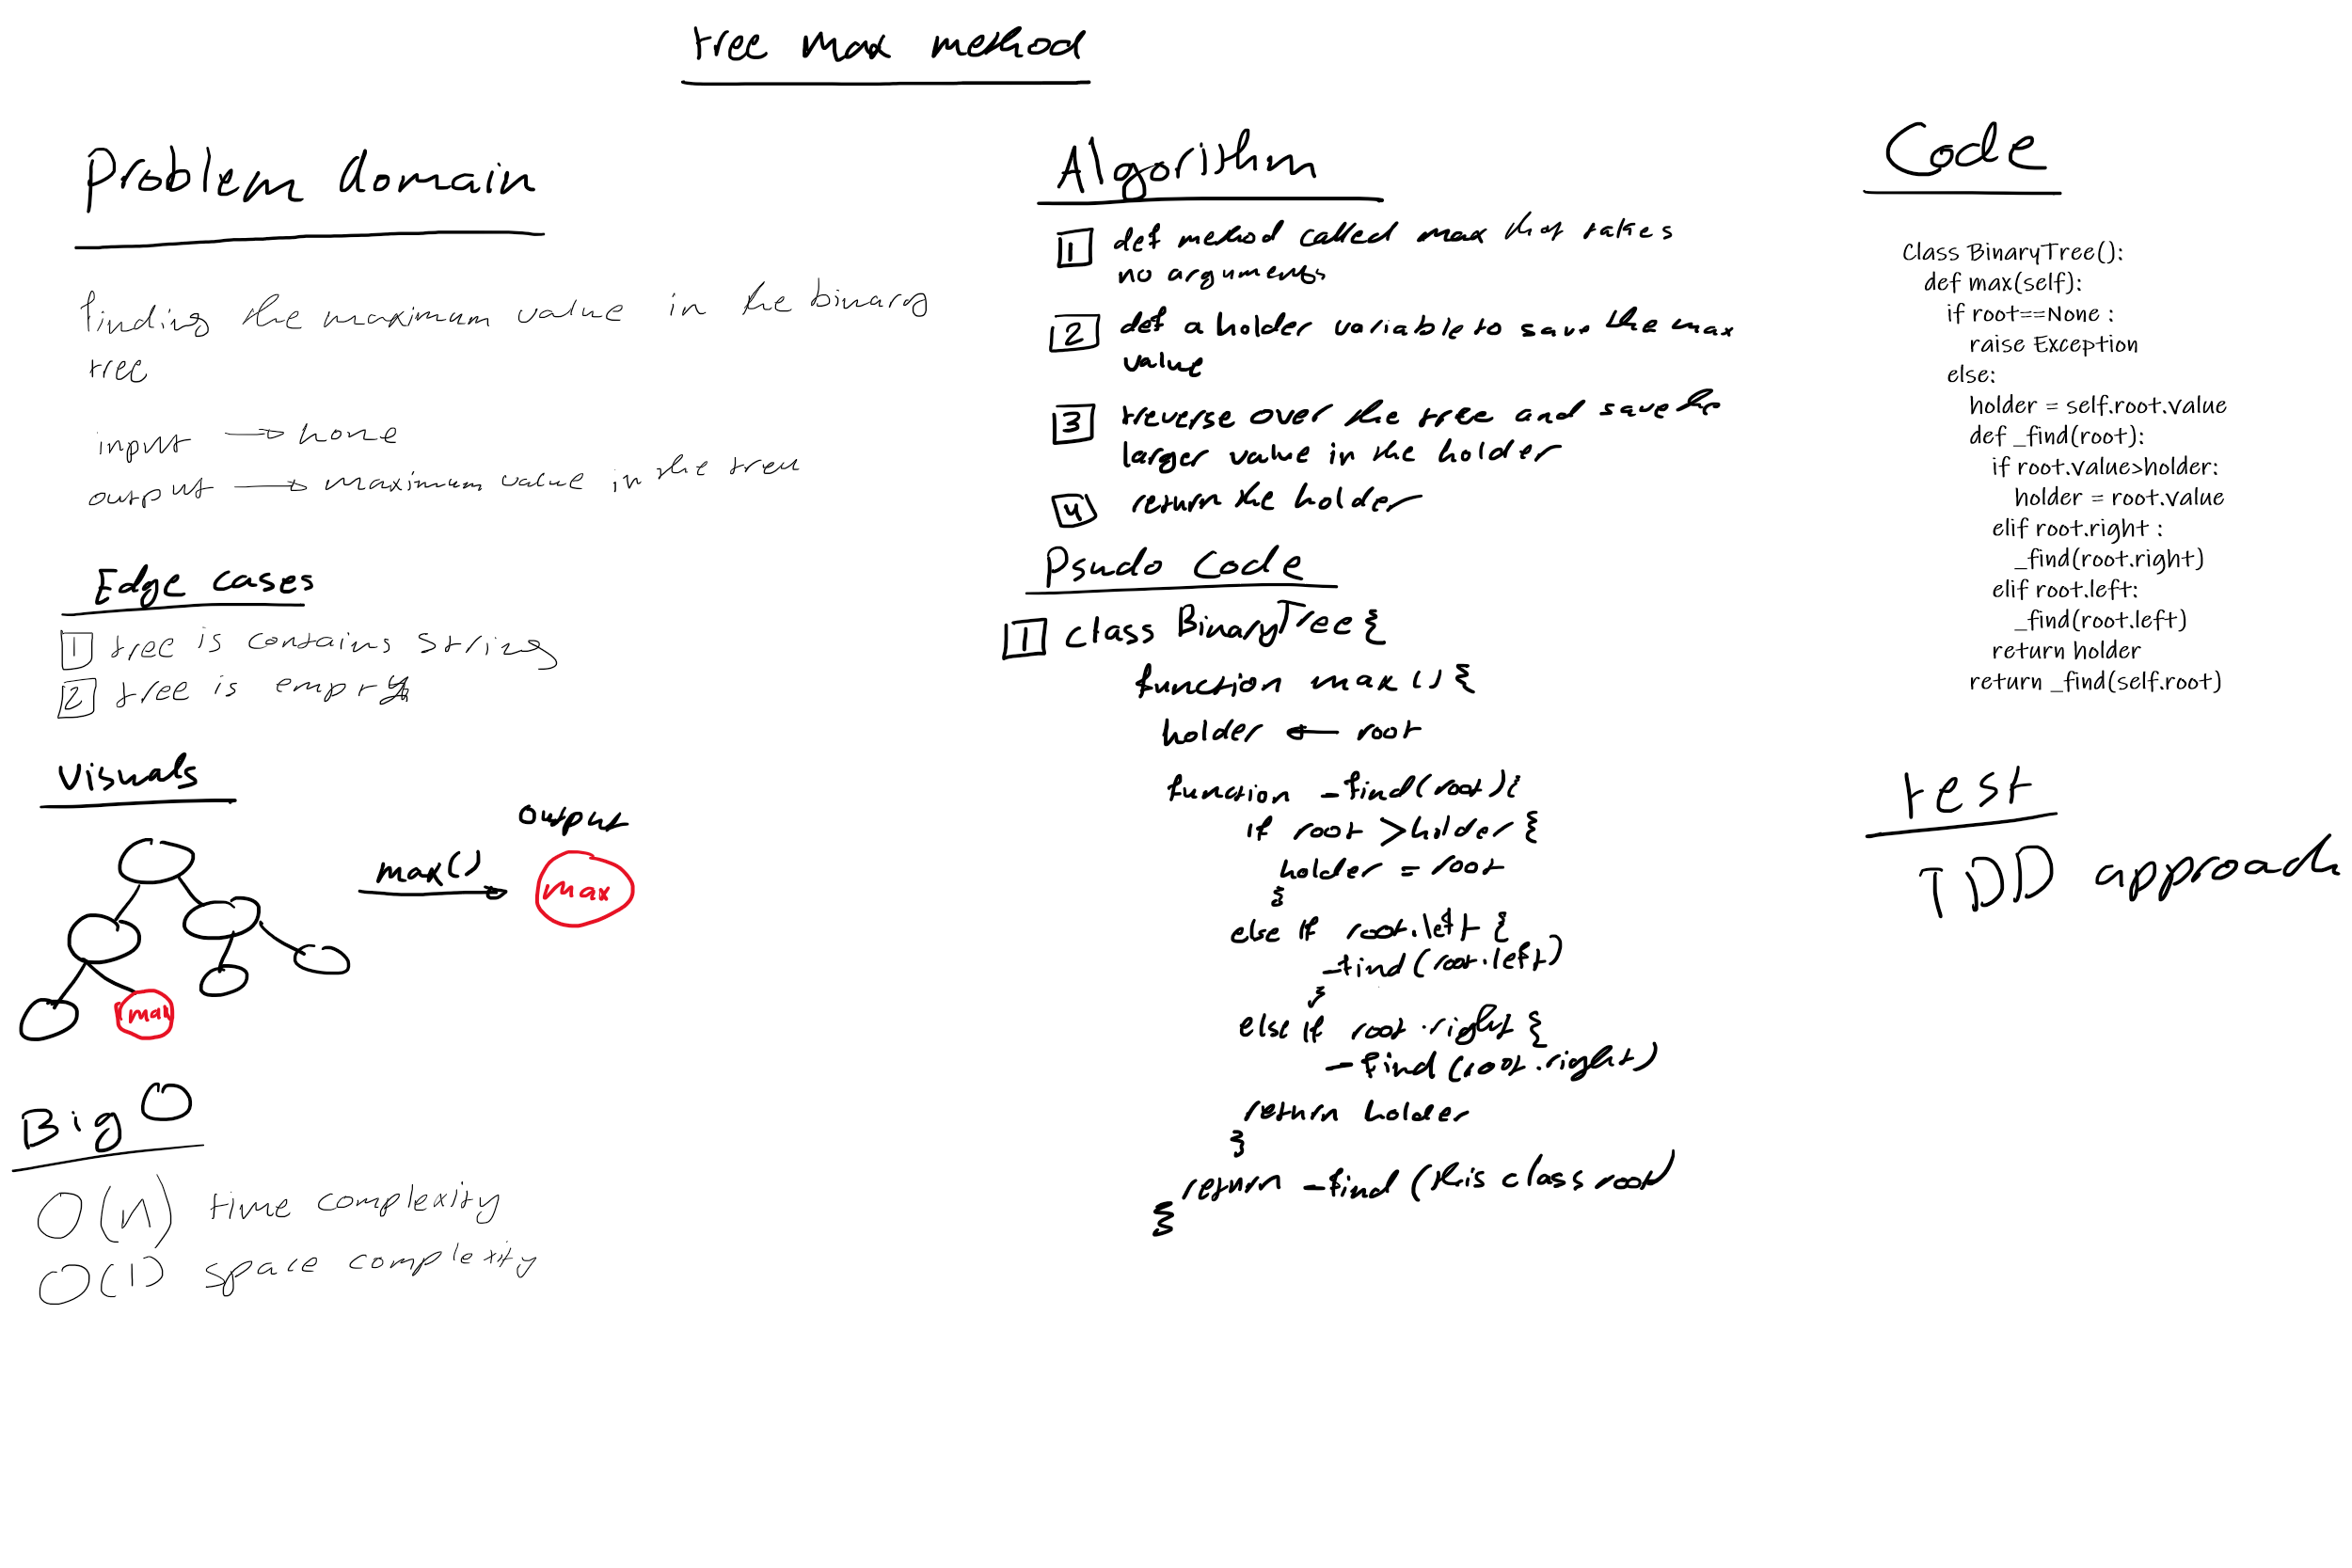 tree max method
Problem domain
finding the maximum value in the binary
tree
input → none
output → maximum value in the tree
Edge cases
1 tree is contains string
2 tree is empty
Visuals
max()
output
max
max
Big O
O(n) time complexity
O(1) space complexity
Algorithm
1 def method called max that takes
no arguments
2 def a holder variable to save the max
value
3 treverse over the tree and save the
larger value in the holder
4 return the holder
Psudo Code
1 class BinaryTree {
function max () {
holder ← root
function _find(root){
if root > holder {
holder = root
}
else if root.left {
_find(root.left)
}
else if root.right {
_find(root.right)
return holder
}
return _find(this class root)
}
Code
Class BinaryTree():
def max(self):
if root==None :
raise Exception
else:
holder = self.root.value
def _find(root):
if root.value>holder:
holder = root.value
elif root.right :
_find(root.right)
elif root.left:
_find(root.left)
return holder
return _find(self.root)
test
TDD approach